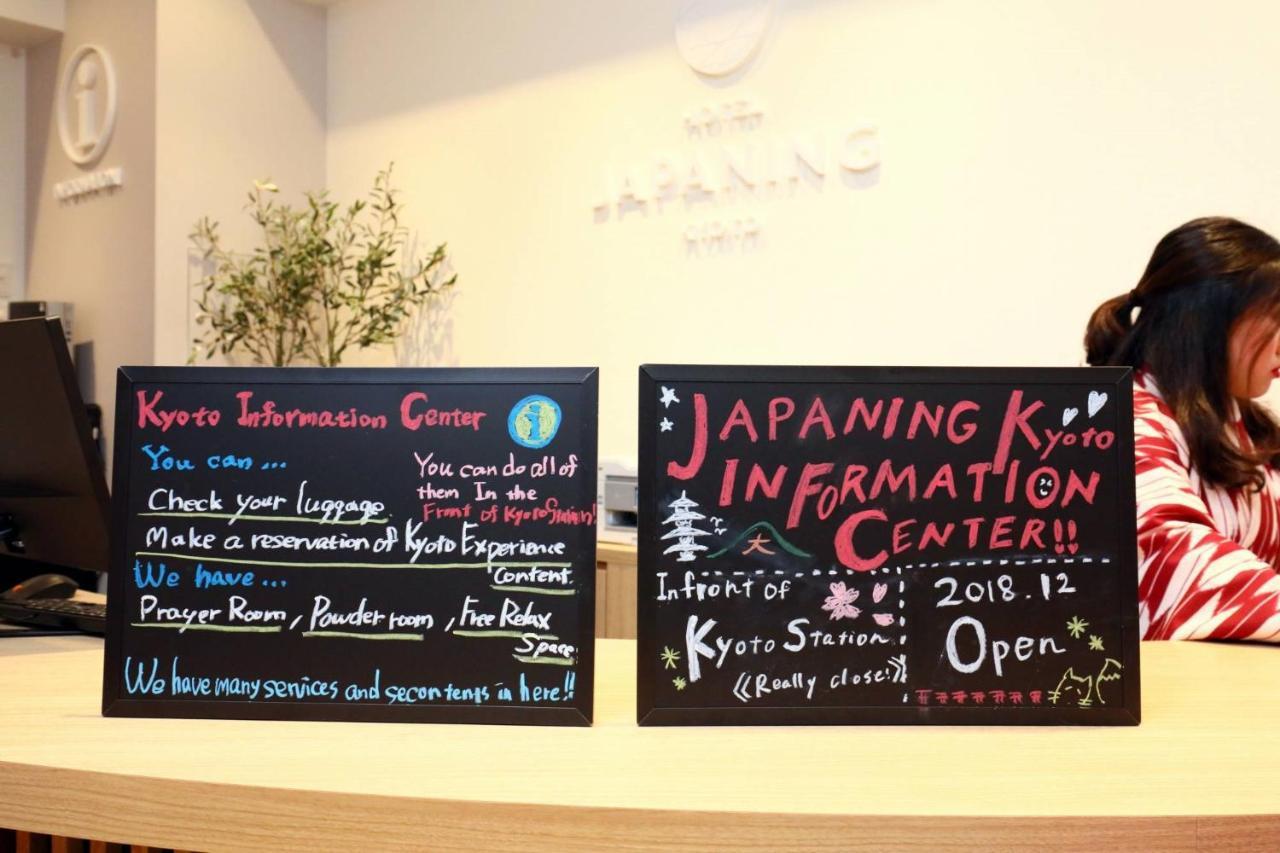 i
JAPANING
KYOTO
Kyoto Information Center
i
You can ...
You can do all of
them In the
Front of Kyoto Station!
Check your luggage
Make a reservation of Kyoto Experience
Content
We have ...
Prayer Room, Powder room, Free Relax
Space
We have many services and secontents in here!!
JAPANING Kyoto
INFORMATION
CENTER!!
大
Infront of
Kyoto Station
《Really close!》
2018.12
Open